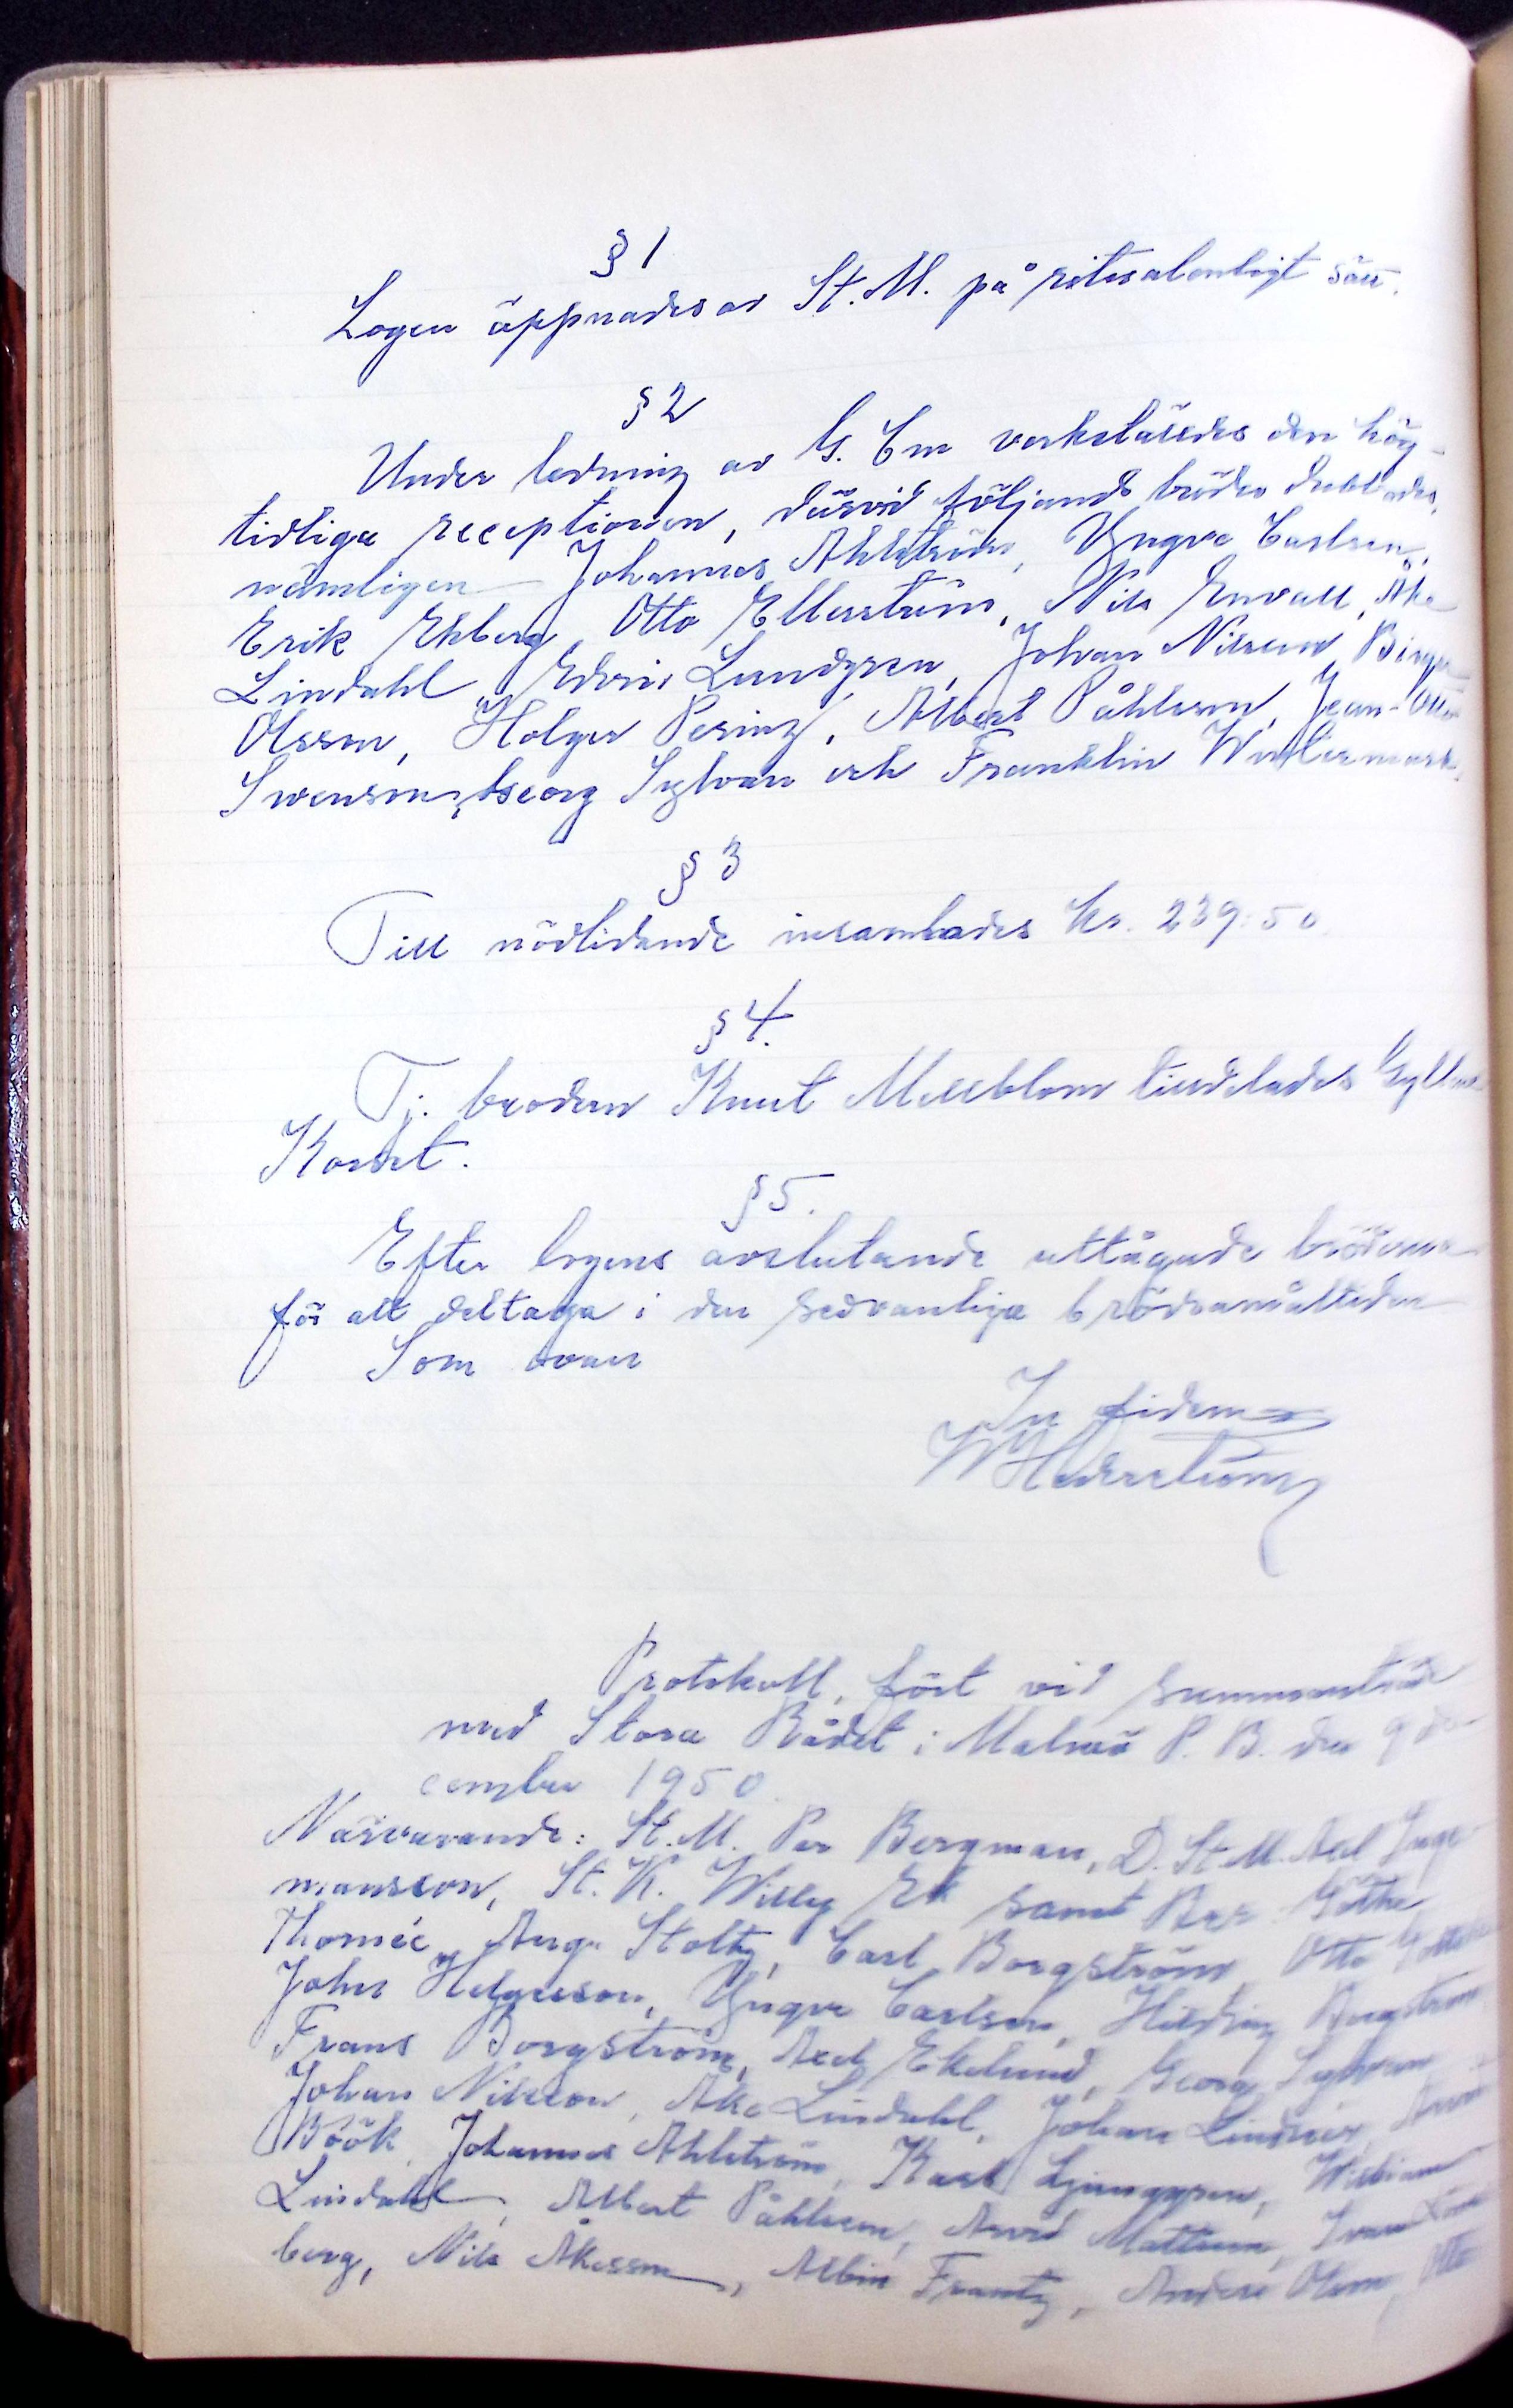 § 1
Logen öppnades av St. M. på ritualenligt sätt.
§ 2
Under ledning av G. Cm verkställdes den hög-
tidliga receptionen, därvid följande bröder dubbades,
nämligen Johannes Ahlström, Yngve Carlsen,
Erik Ekberg, Otto Ellerström, Nils Envall, Åke
Lindahl, Edvin Lundgren, Johan Nilsson, Birger
Olsson, Holger Persing, Albert Påhlsson, Jean-
Swenson, Georg Sylvan och Franklin Wintermark.
§ 3
Till nödlidande insamlades kr. 239:50
§ 4.
Tj. brodern Knut Mellblom tilldelades Gyllne
Korset.
§ 5.
Efter logens avslutande uttågade bröderna
för att deltaga i den sedvanliga brödramåltiden
Som ovan
In fidem
W Hederström
Protokoll, fört vid sammanträde
med Stora Rådet i Malmö P. B. den 9 de-
cember 1950.
Närvarande: St. M. Per Bergman, D. St. M. Axel Inge-
mansson, St. K. Willy Ek samt Brr Göthe
Thomée, Aug. Stoltz, Carl Borgström, Otto
John Helgesson, Yngve Carlsen, Hilding Bergström
Frans Borgström, Axel Ekelund, Georg Sylvan
Johan Nilsson, Åke Lindahl, Johan Lindner, Arvid
Böök, Johannes Ahlström, Karl Ljunggren, William
Lindahl, Albert Påhlsson, Arvid Mattsson, Ivan
berg, Nils Åkesson, Albin Frantz, André Olsson, Otto